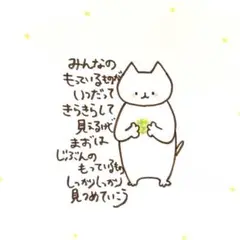 みんなの
もっているものが
いつだって
きらきらして
見えるけど
まずは
じぶんの
もっているもの
しっかりしっかり
見つめていこう